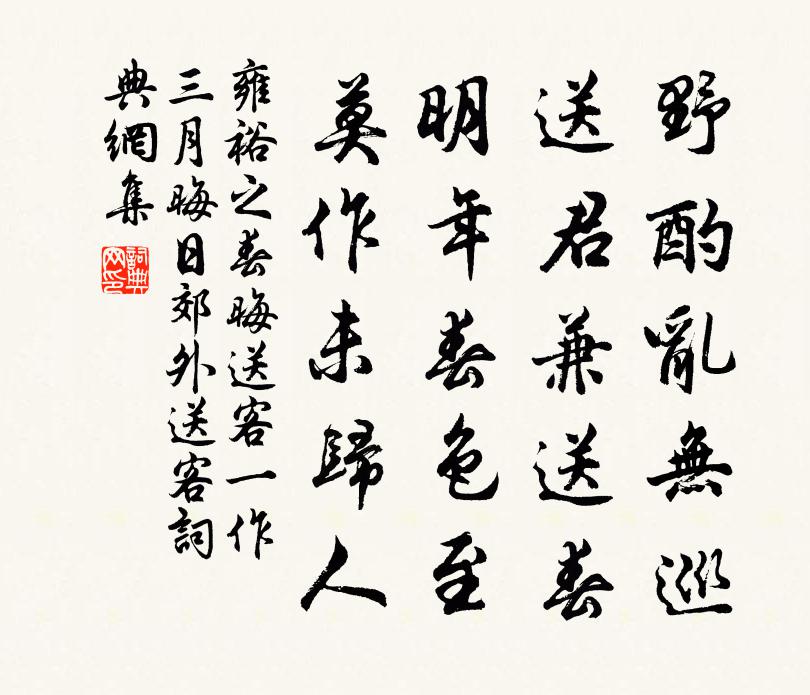 野酌亂無巡
送君兼送春
明年春色至
莫作未歸人
雍裕之春晦送客一作
三月晦日郊外送客詞
典網集
詞典网印